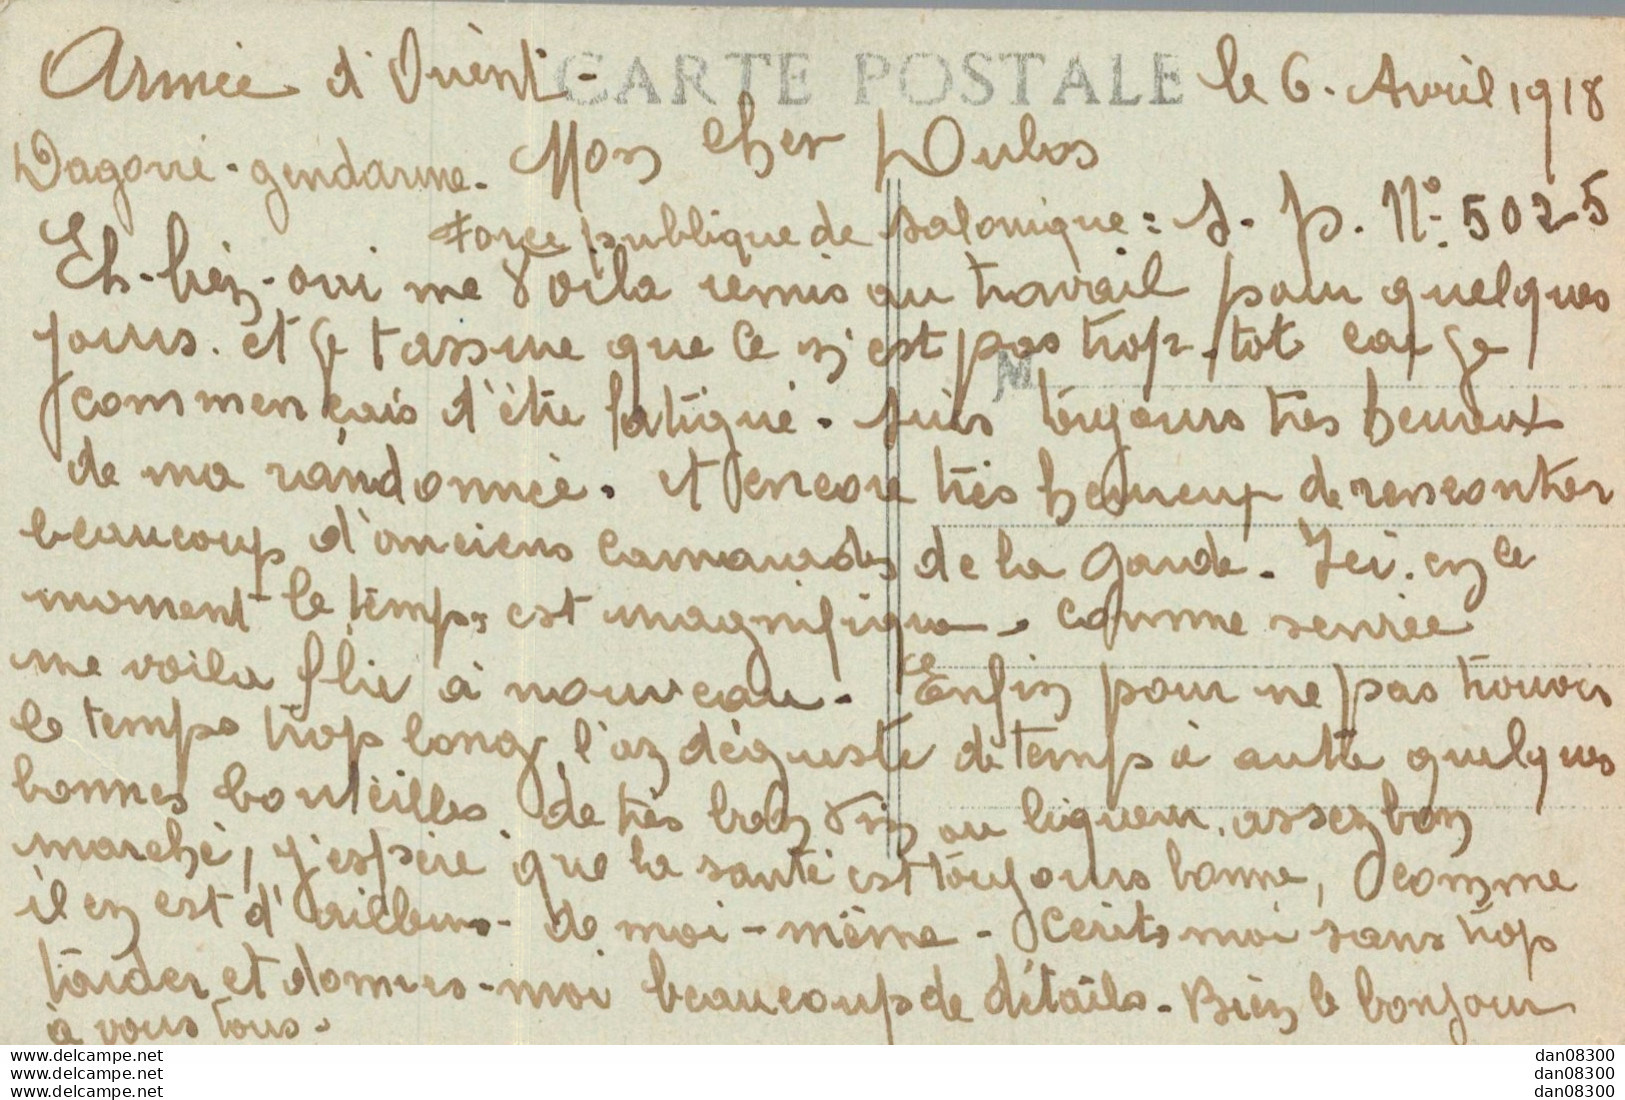 Armée d'Orient - CARTE POSTALE le 6. Avril 1918
Dagorré - gendarme. Mon cher Dubos
Force publique de Salonique = S. P. N° 5025
Eh-bien-oui me voila remis au travail pour quelques
jours. et je t'assure que ce n'est pas trop-tot car je
commençais d'être fatigué. suis toujours très heureux
de ma randonnée. et encore très heureux de rencontrer
beaucoup d'anciens camarades de la garde. Ici. en ce
moment-le temps est magnifique. comme
me voila à nouveau. Enfin pour ne pas trouver
le temps trop long l'on déguste de temps à autre quelques
bonnes bouteilles de très bon vin ou liqueur. assez bon
marché, j'espère que la santé est toujours bonne, comme
il en est d'ailleurs - de moi-même - écrits moi sans trop
tarder et donnes-moi beaucoup de détails. Bien le bonjour
à vous tous.
delcampe.net
delcampe.net
delcampe.net
dan08300
dan08300
dan08300